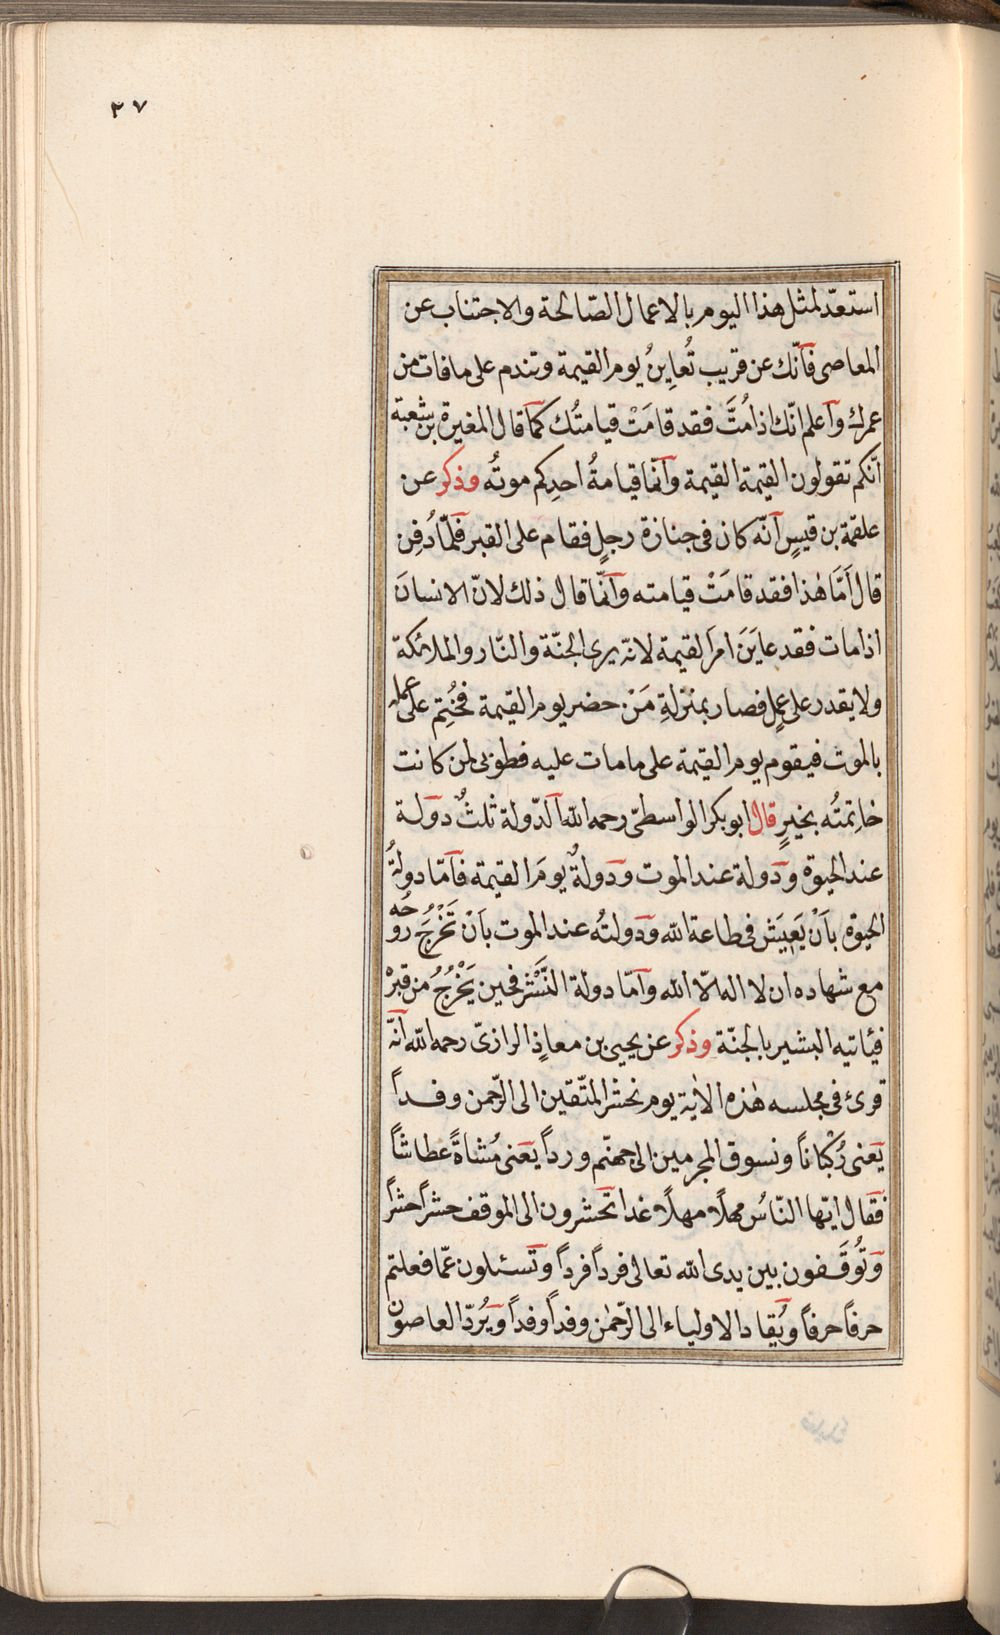 ٣٧
استعدّ لمثل هذا اليوم بالاعمال الصّالحة والاجتناب عن
المعاصى فانّك عن قريب تُعاينُ يوم القيمة وتندم على مافات من
عمرك واعلم انّك اذا مُتَّ فقد قامَتْ قيامتُك كما قال المغيرة بن شعبة
انّكم تقولون القيمة القيمة وانّما قيامةُ احدِكم موتُه وذكر عن
علقمة بن قيسٍ انّه كان فى جنازة رجلٍ فقام على القبر فلمّا دُفِن
قال اَمَّا هٰذا فقد قامَتْ قيامته وانّما قال ذلك لانّ الانسانَ
اذا مات فقد عايَنَ امرَ القيمة لانّه يرى الجنّة والنّار والملائكة
ولا يقدر على عملٍ فصار بمنزلةِ مَنْ حضر يوم القيمة فخُتِم على عمله
بالموت فيقوم يوم القيمة على ما مات عليه فطوبى لمن كانت
خاتمتُه بخيرٍ قال ابو بكر الواسطىّ رحمه الله الدّولة ثلثٌ دولة
عند الحيوة ودولة عند الموت ودولةٌ يومَ القيمة فامّا دولةُ
الحيوة بِاَنْ يَعِيَش فى طاعة الله ودولتُه عند الموت بِاَنْ تَخْرُجَ رُوحُه
مع شهاده ان لا اله الّا الله وامّا دولة النَّشْر فحين يَخْرُجُ من قبرْ
فيأتيه البشير بالجنّة وذكر عن يحيى بن معاذٍ الرازىّ رحمه الله انّه
قرئ فى مجلسه هٰذه الاٰية يوم نحشر المتّقين الى الرّحمن وفداً
يَعنى رُكْباناً ونسوق المجرمين الى جهنّم ورداً يعنى مُشاةً عطاشاً
فقال ايّها النّاسُ مهلًا مهلًا غدا تحشرون الى الموقف حشراً حشراً
وتُوقَفون بين يدى الله تعالى فرداً فرداً وتسئلون عمّا فعلتم
حرفاً حرفاً ويُقاد الاولياء الى الرّحمٰن وفداً وفداً ويُردّ العاصون